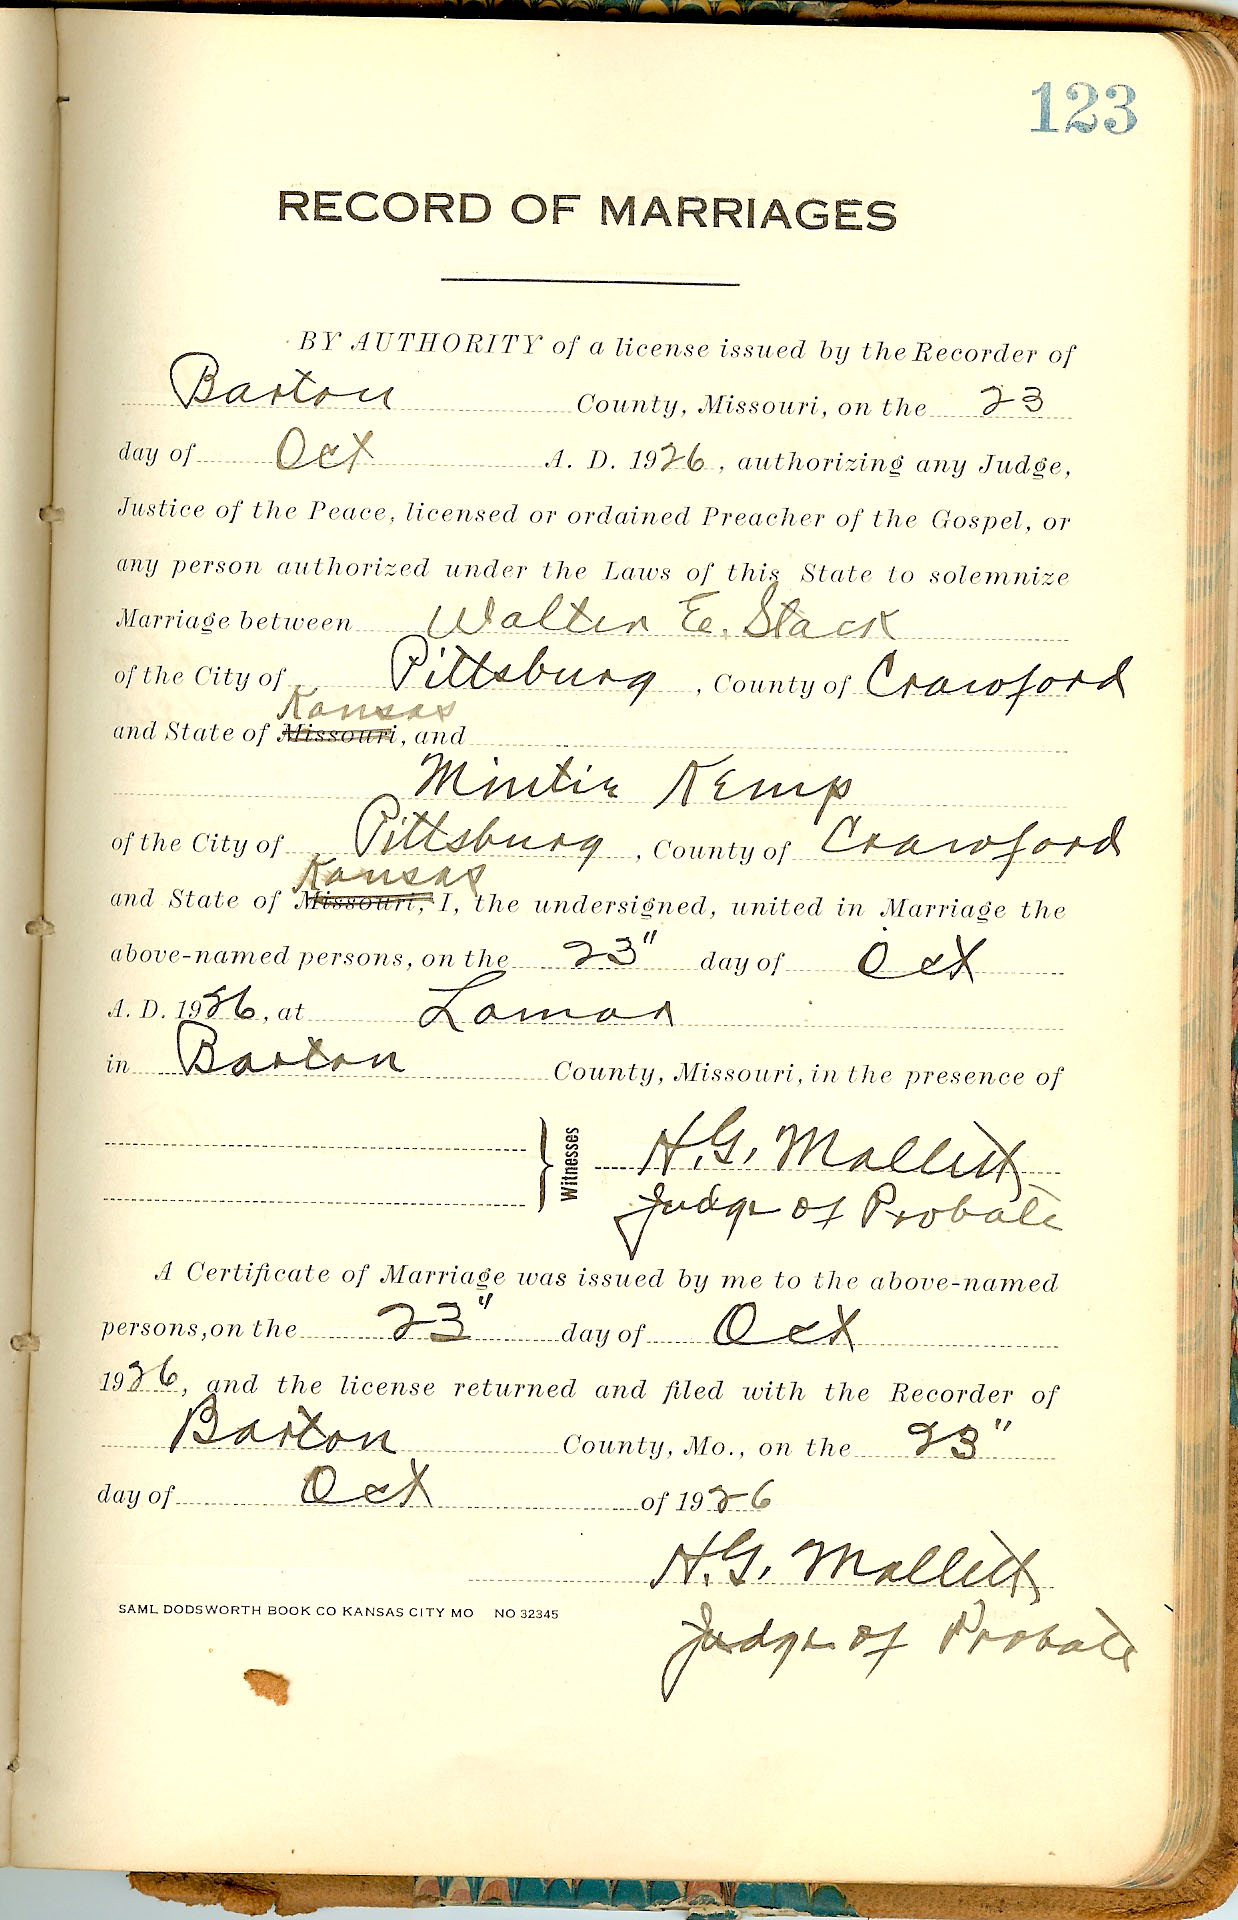 123
RECORD OF MARRIAGES
BY AUTHORITY of a license issued by the Recorder of
Barton County, Missouri, on the 23
day of Oct A. D. 1926, authorizing any Judge,
Justice of the Peace, licensed or ordained Preacher of the Gospel, or
any person authorized under the Laws of this State to solemnize
Marriage between Walter E. Slack
of the City of Pittsburg, County of Crawford
Kansas
and State of Missouri, and
Mintie Kemp
of the City of Pittsburg, County of Crawford
Kansas
and State of Missouri, I, the undersigned, united in Marriage the
above-named persons, on the 23" day of Oct
A. D. 1926, at Lamar
in Barton County, Missouri, in the presence of
Witnesses H. G. Mallett
Judge of Probate
A Certificate of Marriage was issued by me to the above-named
persons, on the 23" day of Oct
1926, and the license returned and filed with the Recorder of
Barton County, Mo., on the 23"
day of Oct of 1926
H. G. Mallett
SAML DODSWORTH BOOK CO KANSAS CITY MO NO 32345
Judge of Probate